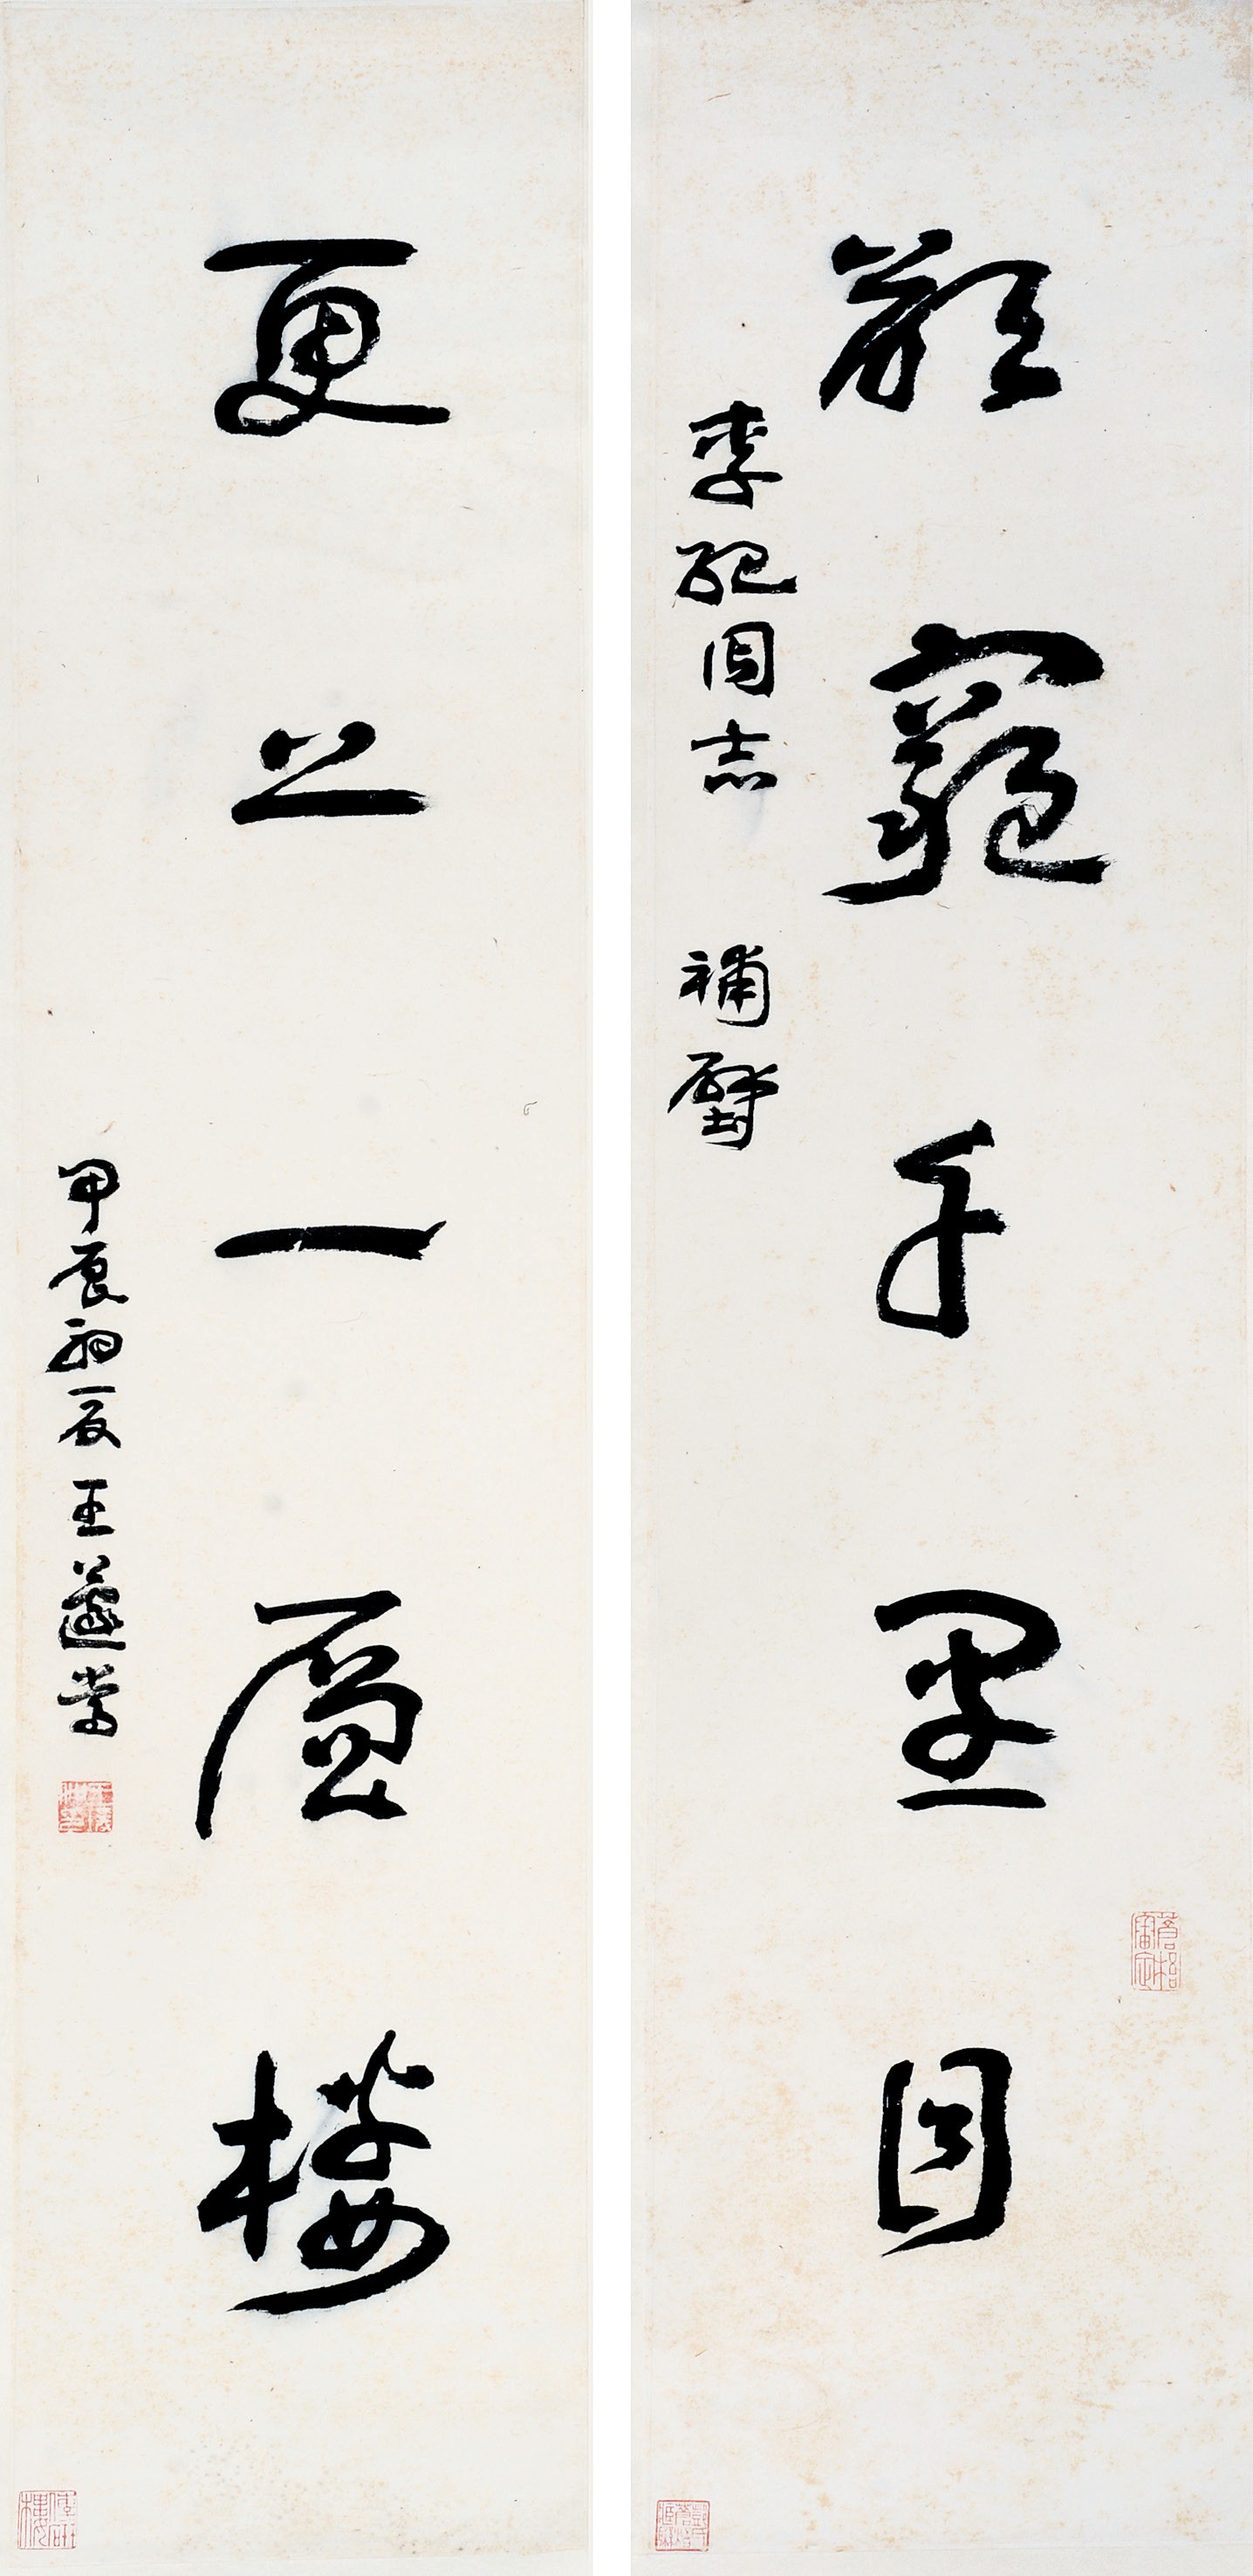 欲窮千里目
李 同志 補壁
更上一層樓
甲辰初夏 王蘧常